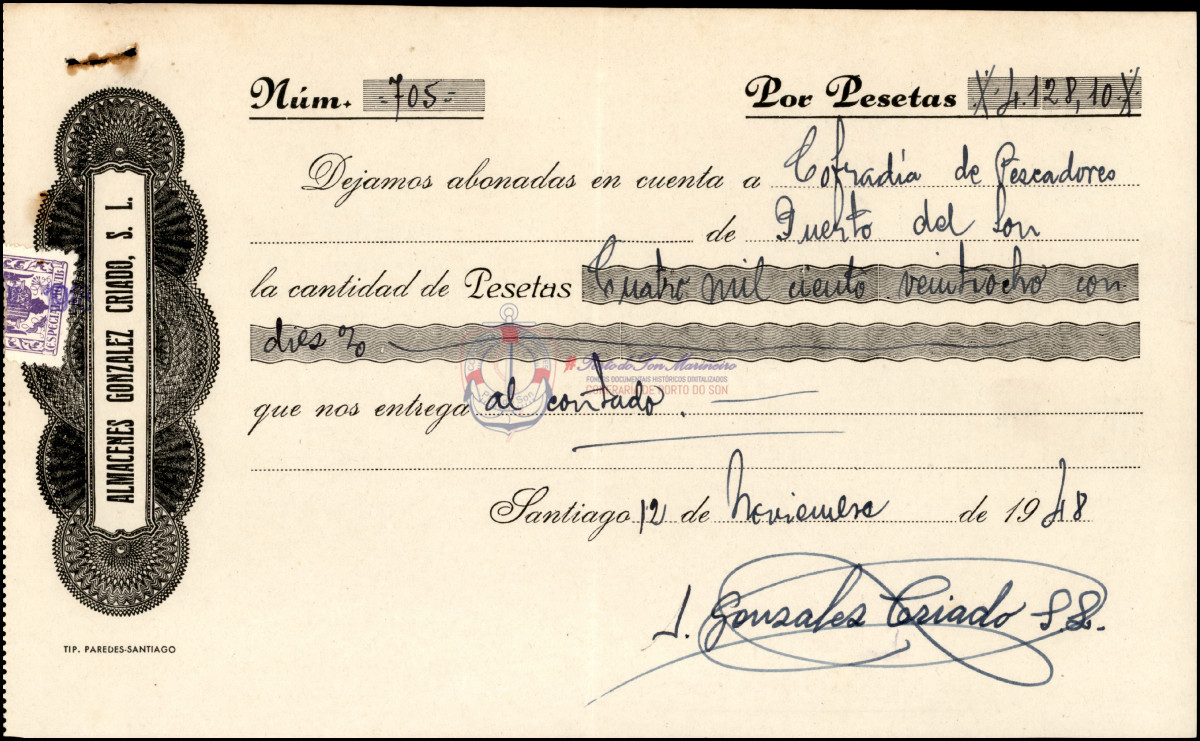 Núm. -705-
Por Pesetas 4.128,10
Dejamos abonadas en cuenta a Cofradía de Pescadores
de Puerto del Son
la cantidad de Pesetas Cuatro mil ciento veintiocho con
dies %
# Porto do Son Marineiro
FONDOS DOCUMENTAIS HISTÓRICOS DIXITALIZADOS
CONFRARÍA DE PORTO DO SON
que nos entrega al contado.
Santiago 12 de Noviembre de 1948
J. Gonzales Criado S.L.
ALMACENES GONZALEZ CRIADO, S. L.
TIP. PAREDES-SANTIAGO